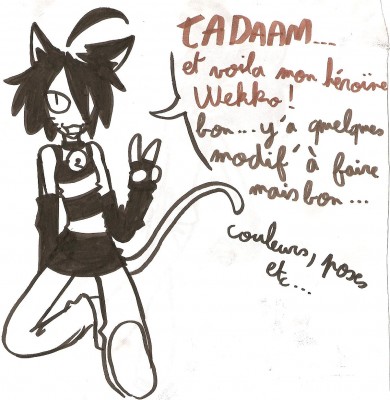 TADAAM...
et voila mon héroïne
Wekko!
bon... y'a quelques
modif' à faire
mais bon...
couleurs, poses
etc...